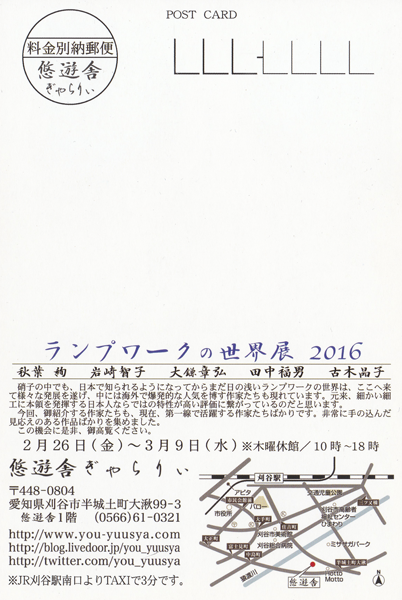 POST CARD
料金別納郵便
悠遊舎
ぎゃらりぃ
ランプワークの世界展 2016
秋葉 絢 岩崎智子 大鎌章弘 田中福男 古木晶子
硝子の中でも、日本で知られるようになってからまだ日の浅いランプワークの世界は、ここへ来
て様々な発展を遂げ、中には海外で爆発的な人気を博す作家たちも現れています。元来、細かい細
工に本領を発揮する日本人ならではの特性が高い評価に繋がっているのだと思います。
今回、御紹介する作家たちも、現在、第一線で活躍する作家たちばかりです。非常に手の込んだ
見応えのある作品ばかりを集めました。
この機会に是非、御高覧ください。
2月26日(金)～3月9日(水) ※木曜休館／10時~18時
悠遊舎ぎゃらりぃ
〒448-0804
愛知県刈谷市半城土町大湫99-3
悠遊舎1階 (0566)61-0321
http://www.you-yuusya.com
http://blog.livedoor.jp/you_yuusya
http://twitter.com/you_yuusya
※JR刈谷駅南口よりTAXIで3分です。
刈谷駅
アピタ
交通児童公園
市役所
サロー
大手町
刈谷市高齢者
福祉センター
ひまわり
刈谷市美術館
刈谷総合病院
中島町
ミササガパーク
猿渡川
半城土町大湫
悠遊舎
Hotto
Motto